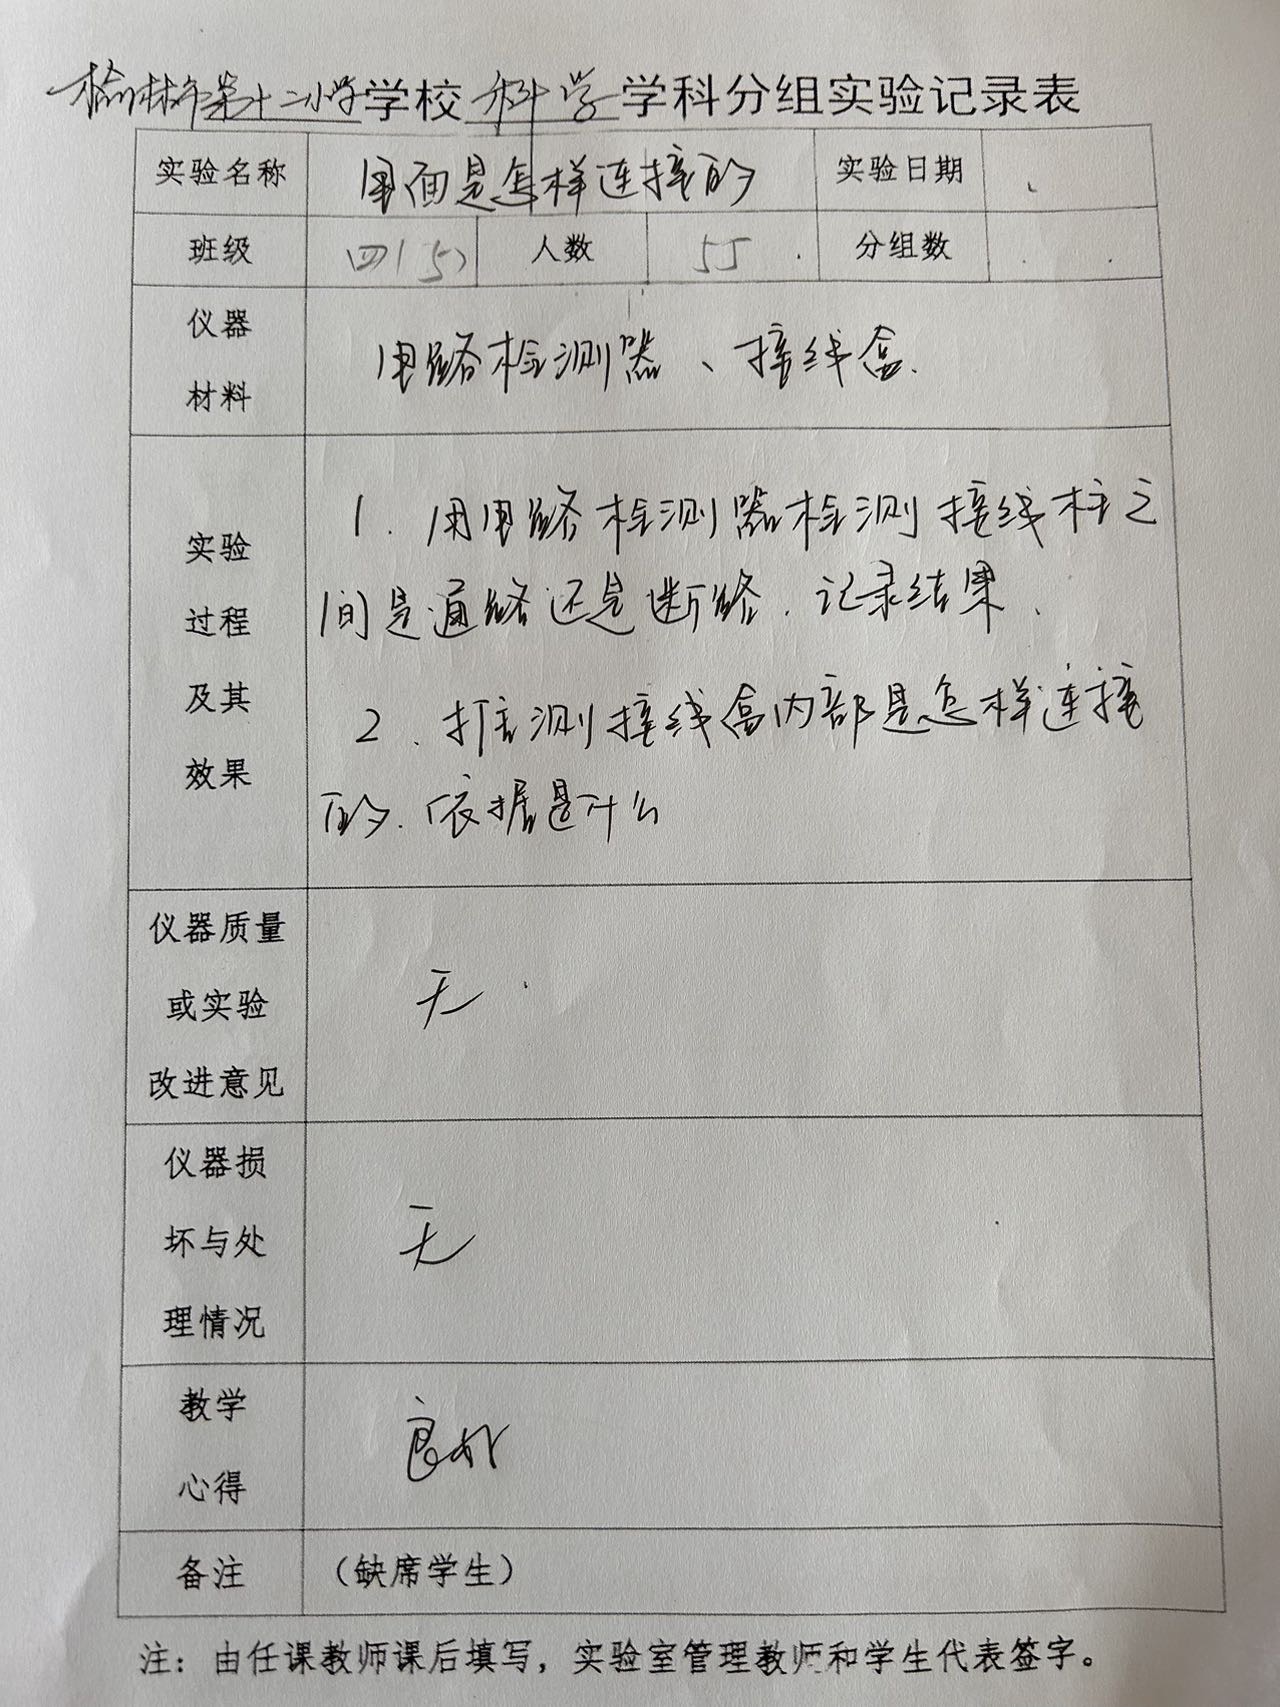 榆林市第十二小学学校 科学 学科分组实验记录表
实验名称 里面是怎样连接的 实验日期
班级 四(5) 人数 55 分组数
仪器
材料
电路检测器、接线盒.
实验
过程
及其
效果
1. 用电路检测器检测接线柱之
间是通路还是断路.记录结果.
2.推测接线盒内部是怎样连接
的.依据是什么
仪器质量
或实验
改进意见
无.
仪器损
坏与处
理情况
无
教学
心得
良好
备注 (缺席学生)
注:由任课教师课后填写,实验室管理教师和学生代表签字。